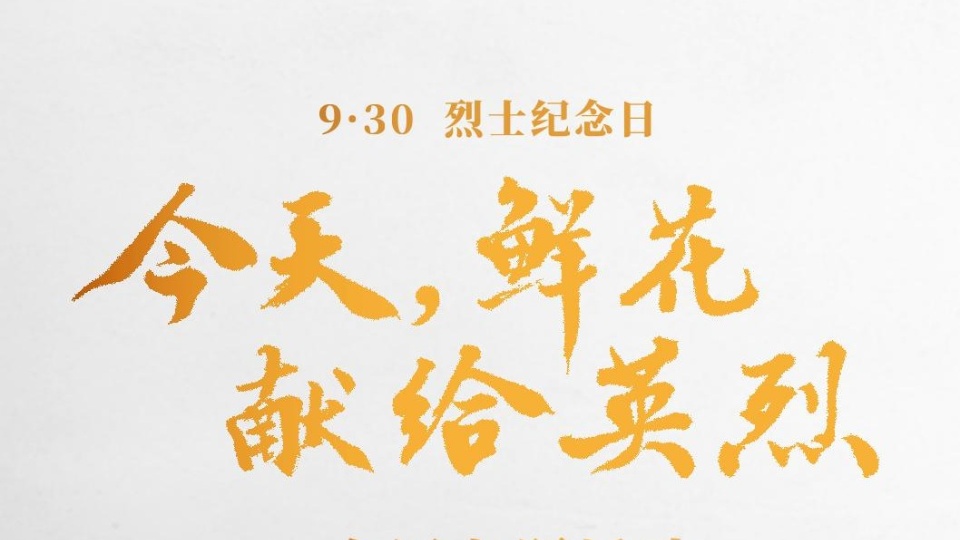 9·30 烈士纪念日
今天,鲜花
献给英烈